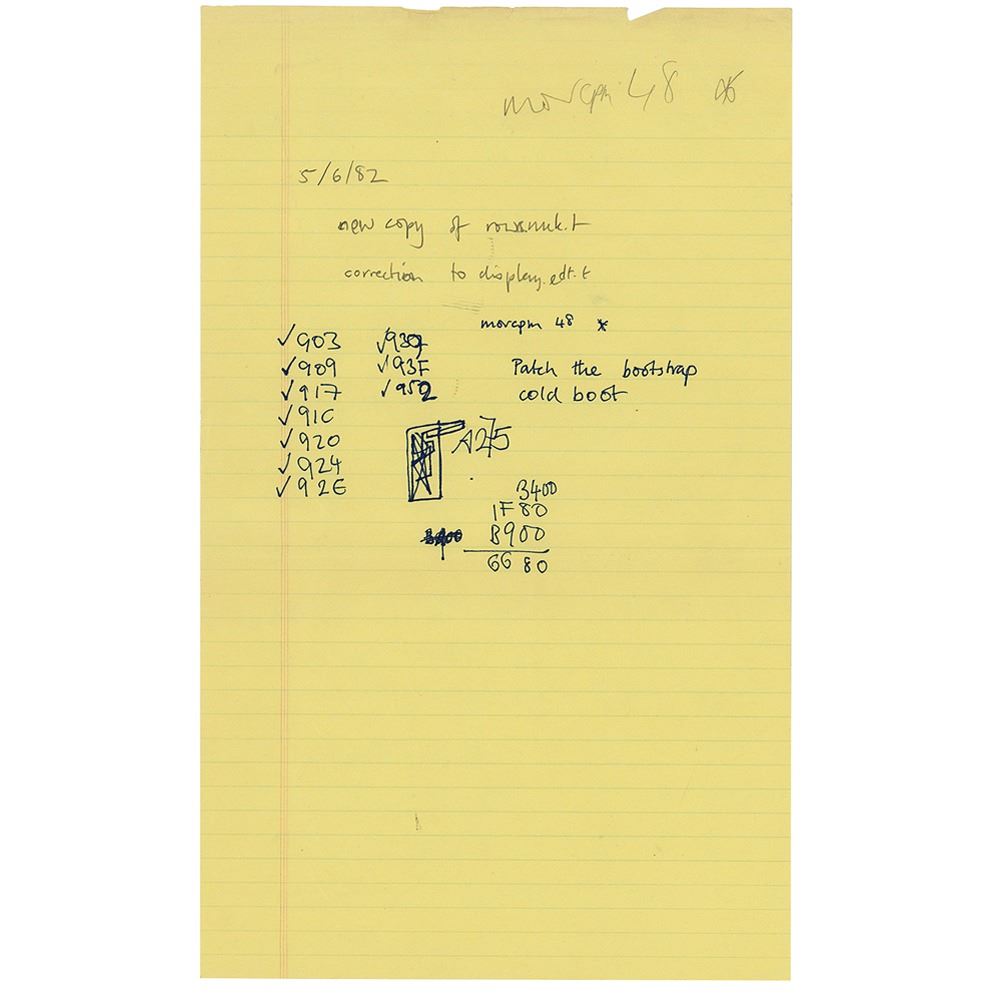 movcpm 48
5/6/82
new copy of
correction to display.edt.t
movcpm 48 *
✓903
✓909
✓917
✓91C
✓920
✓924
✓92E
✓93F
✓952
Patch the bootstrap
cold boot
A275
B400
1F80
B900
6680